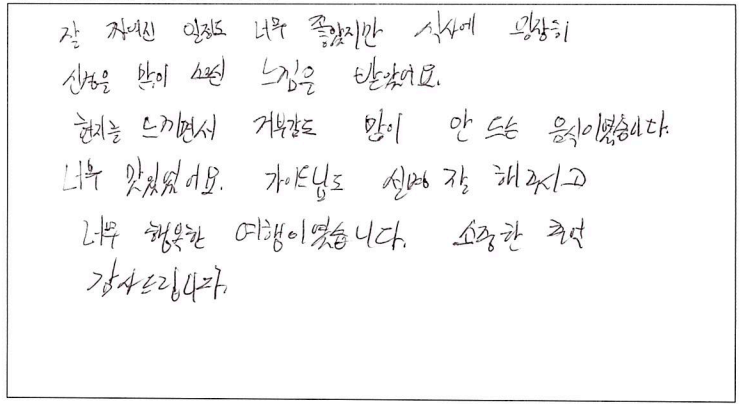 잘 짜여진 일정도 너무 좋았지만 식사에 굉장히
신경을 많이 쓰신 느낌을 받았어요.
현지를 느끼면서 거부감도 많이 안 드는 음식이였습니다.
너무 맛있었어요. 가이드님도 설명 잘 해주시고
너무 행복한 여행이였습니다. 소중한 추억
감사드립니다.